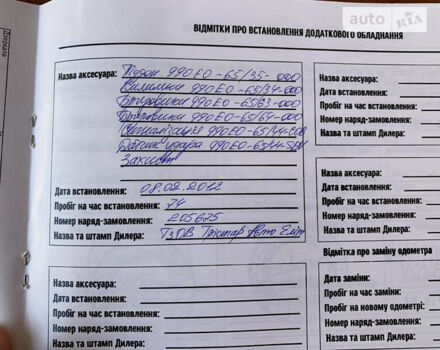 auto RIA
ВІДМІТКИ ПРО ВСТАНОВЛЕННЯ ДОДАТКОВОГО ОБЛАДНАННЯ
Назва аксесуара: Піддон 990E0-65/35-000
Килимки 990E0-65/34-000
Бризговики 990E0-65/63-000
Бризговики 990E0-65/64-000
Сигналізація 990E0-65/44-
Датчик удара 990E0-65/44-SEN
Захист
Дата встановлення: 08.02.2012
Пробіг на час встановлення: 74
Номер наряд-замовлення: 205675
Назва та штамп Дилера: ТзДВ Авто Еліт
Назва аксесуара:
Дата встановлення:
Пробіг на час встановлення:
Номер наряд-замовлення:
Назва та штамп Дилера:
Назва аксесуара:
Дата встановлення:
Пробіг на час встановлення
Номер наряд-замовлення:
Назва та штамп Дилера:
Назва аксесуара:
Дата встановлення:
Пробіг на час встановлення
Номер наряд-замовлення:
Назва та штамп Дилера:
Відмітка про заміну одометра
Дата заміни:
Пробіг на час заміни:
Пробіг на новому одометрі:
Номер наряд-замовлення:
Назва та штамп Дилера: